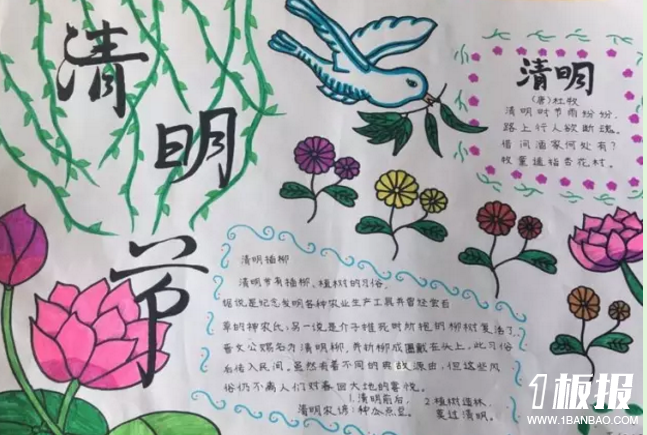 清明节
清明
(唐)杜牧
清明时节雨纷纷,
路上行人欲断魂。
借问酒家何处有?
牧童遥指杏花村。
清明插柳
清明节有插柳、植树的习俗,
据说是纪念发明各种农业生产工具并曾尝百
草的神农氏;另一说是介子推死时所抱的柳树复活了,
晋文公赐名为清明柳,并折柳成圈戴在头上,此习俗
后传入民间。虽然有着不同的典故源由,但这些风
俗仍不离人们对春回大地的喜悦。
1.清明前后, 2.植树造林,
清明农谚:种瓜点豆。 莫过清明。
1板报
WWW.1BANBAO.COM